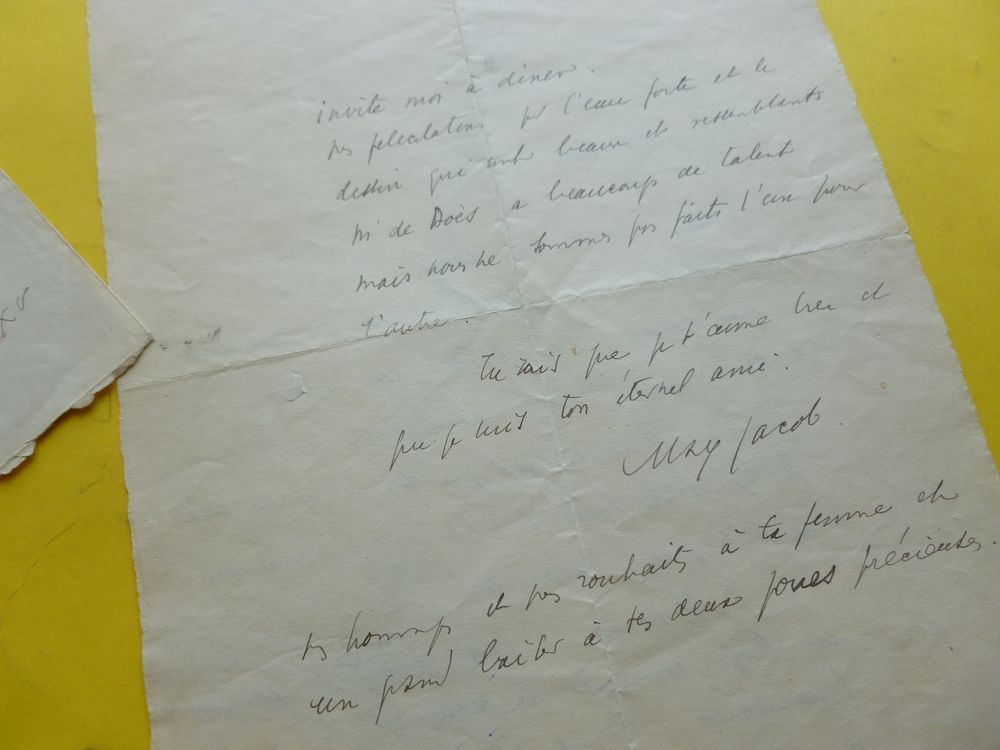 invite moi à diner.
mes felicitations pr l'eau forte et le
dessin qui sont beaux et ressemblants
Mr de Does a beaucoup de talent
mais nous ne sommes pas faits l'un pour
l'autre.
Tu sais que je t'aime bien et
que je suis ton éternel ami.
Max Jacob
mes hommages et mes souhaits à ta femme et
un grand baiser à tes deux joues précieuses.